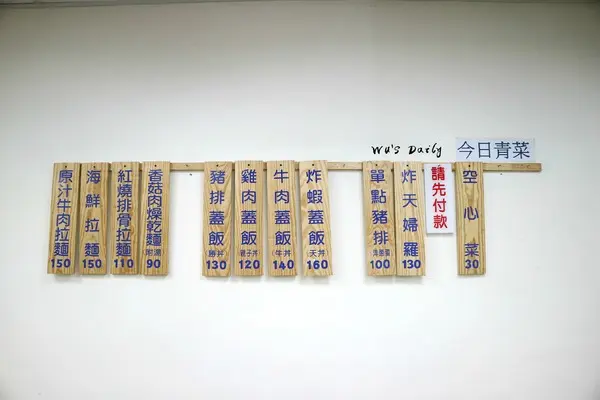 原汁牛肉拉麵
150
海鮮拉麵
150
紅燒排骨拉麵
110
香菇肉燥乾麵
附湯
90
豬排蓋飯
(勝丼)
130
雞肉蓋飯
(親子丼)
120
牛肉蓋飯
(牛丼)
140
炸蝦蓋飯
(天丼)
160
單點豬排
100
炸天婦羅
130
Wu's Daily
請先付款
今日青菜
空心菜
30